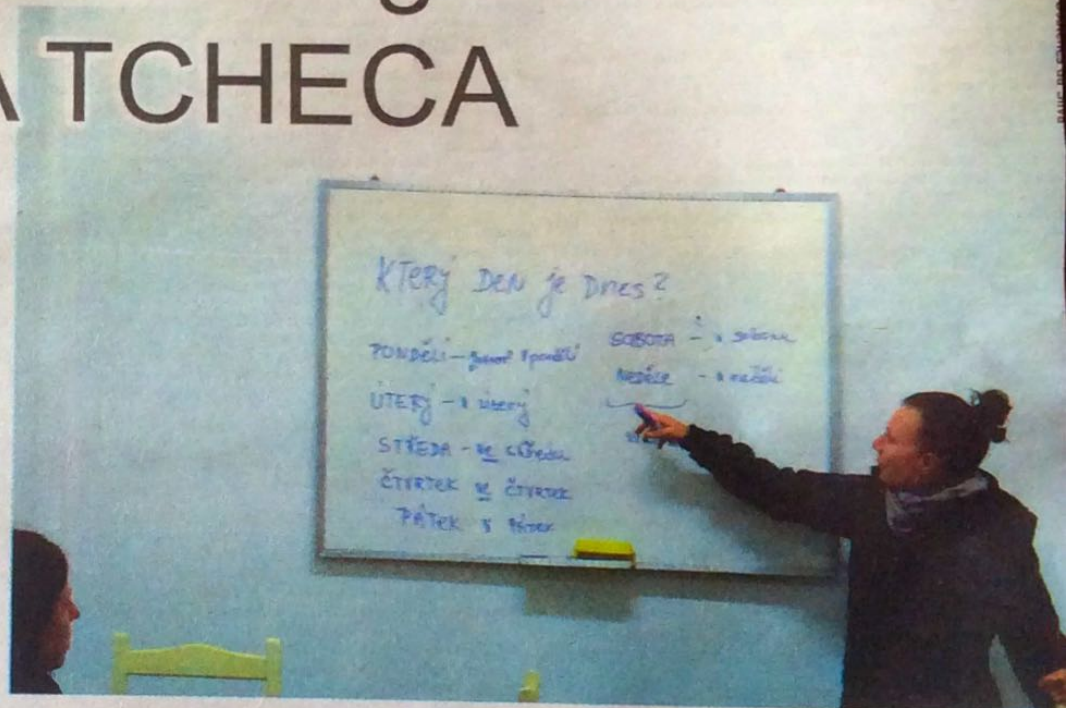 A TCHECA
KTERÝ DEN je DNES?
PONDĚLÍ - v pondělí
ÚTERÝ - v úterý
STŘEDA - ve středu
ČTVRTEK ve ČTVRTEK
PÁTEK v PÁTEK
SOBOTA - v sobotu
NEDĚLE - v neděli